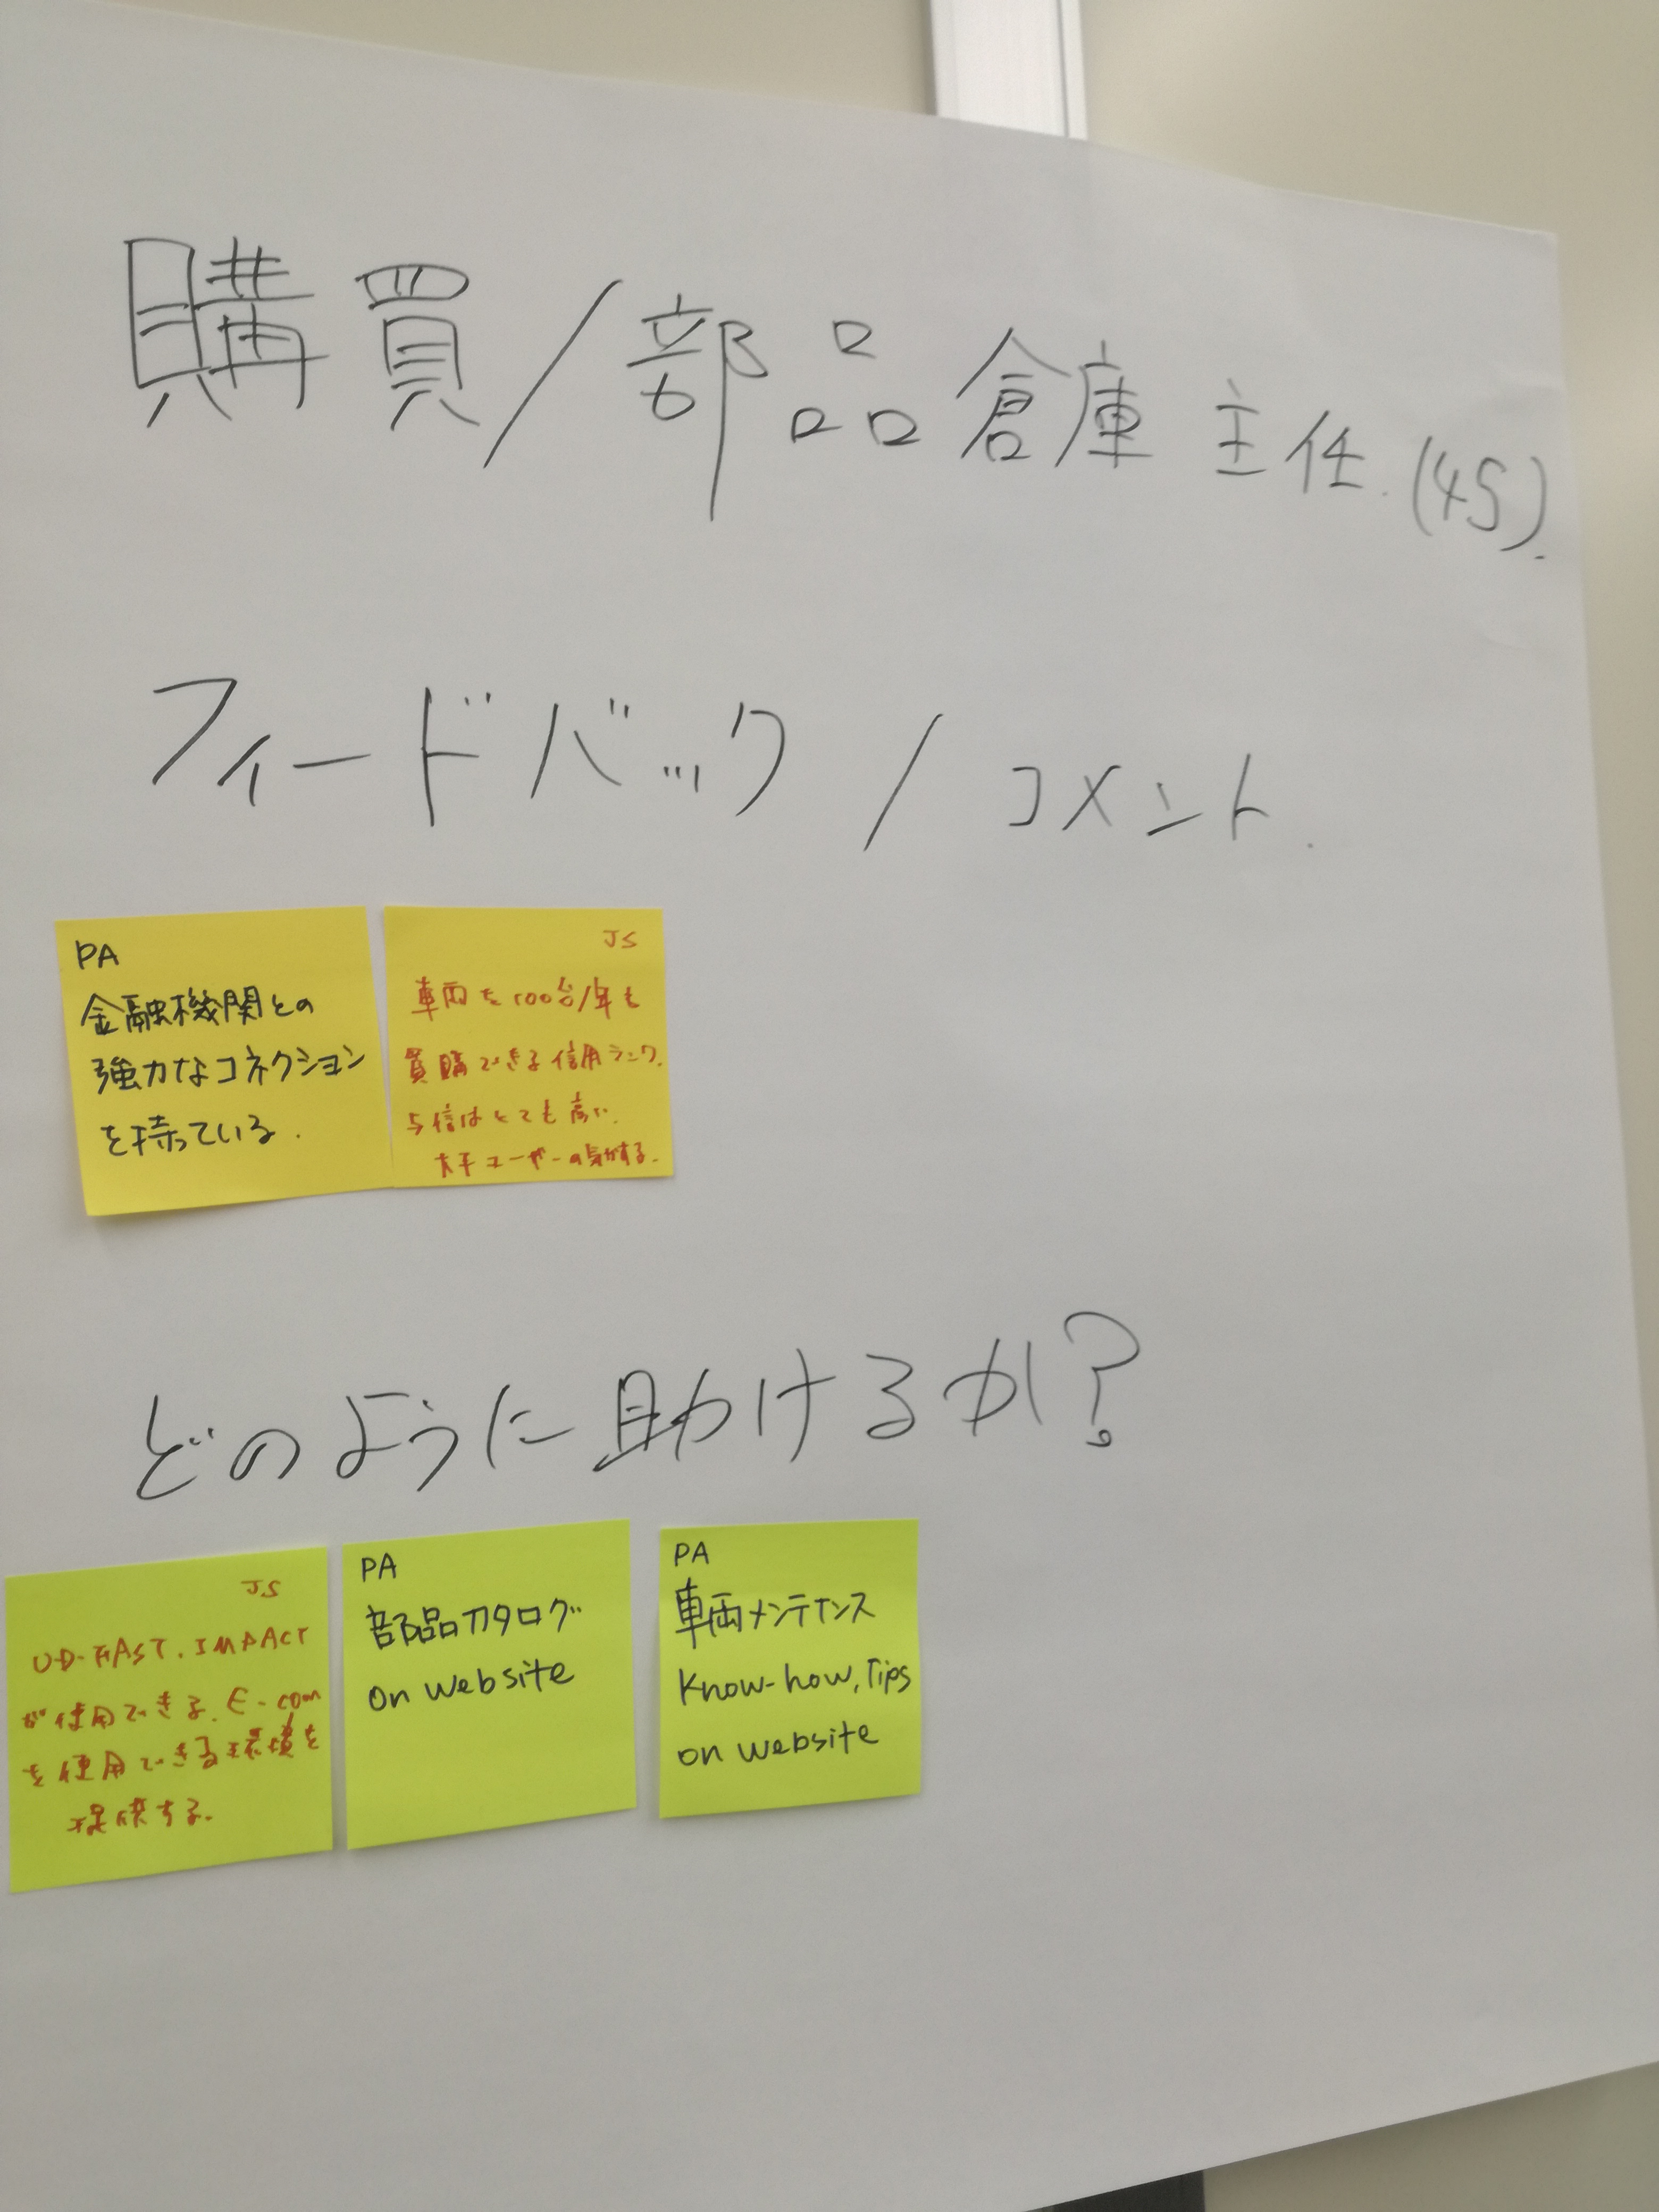 購買/部品倉庫 主任.(45).
フィードバック / コメント.
PA
金融機関との
強力なコネクション
を持っている.
JS
車両を100台/年も
買購できる信用ランク.
与信はとても高い.
大手ユーザーの気がする.
どのように助けるか?
JS
UD-FAST. IMPACT
が使用できる. E-com
を使用できる環境を
提供する.
PA
部品カタログ
on website
PA
車両メンテナンス
Know-how, Tips
on website